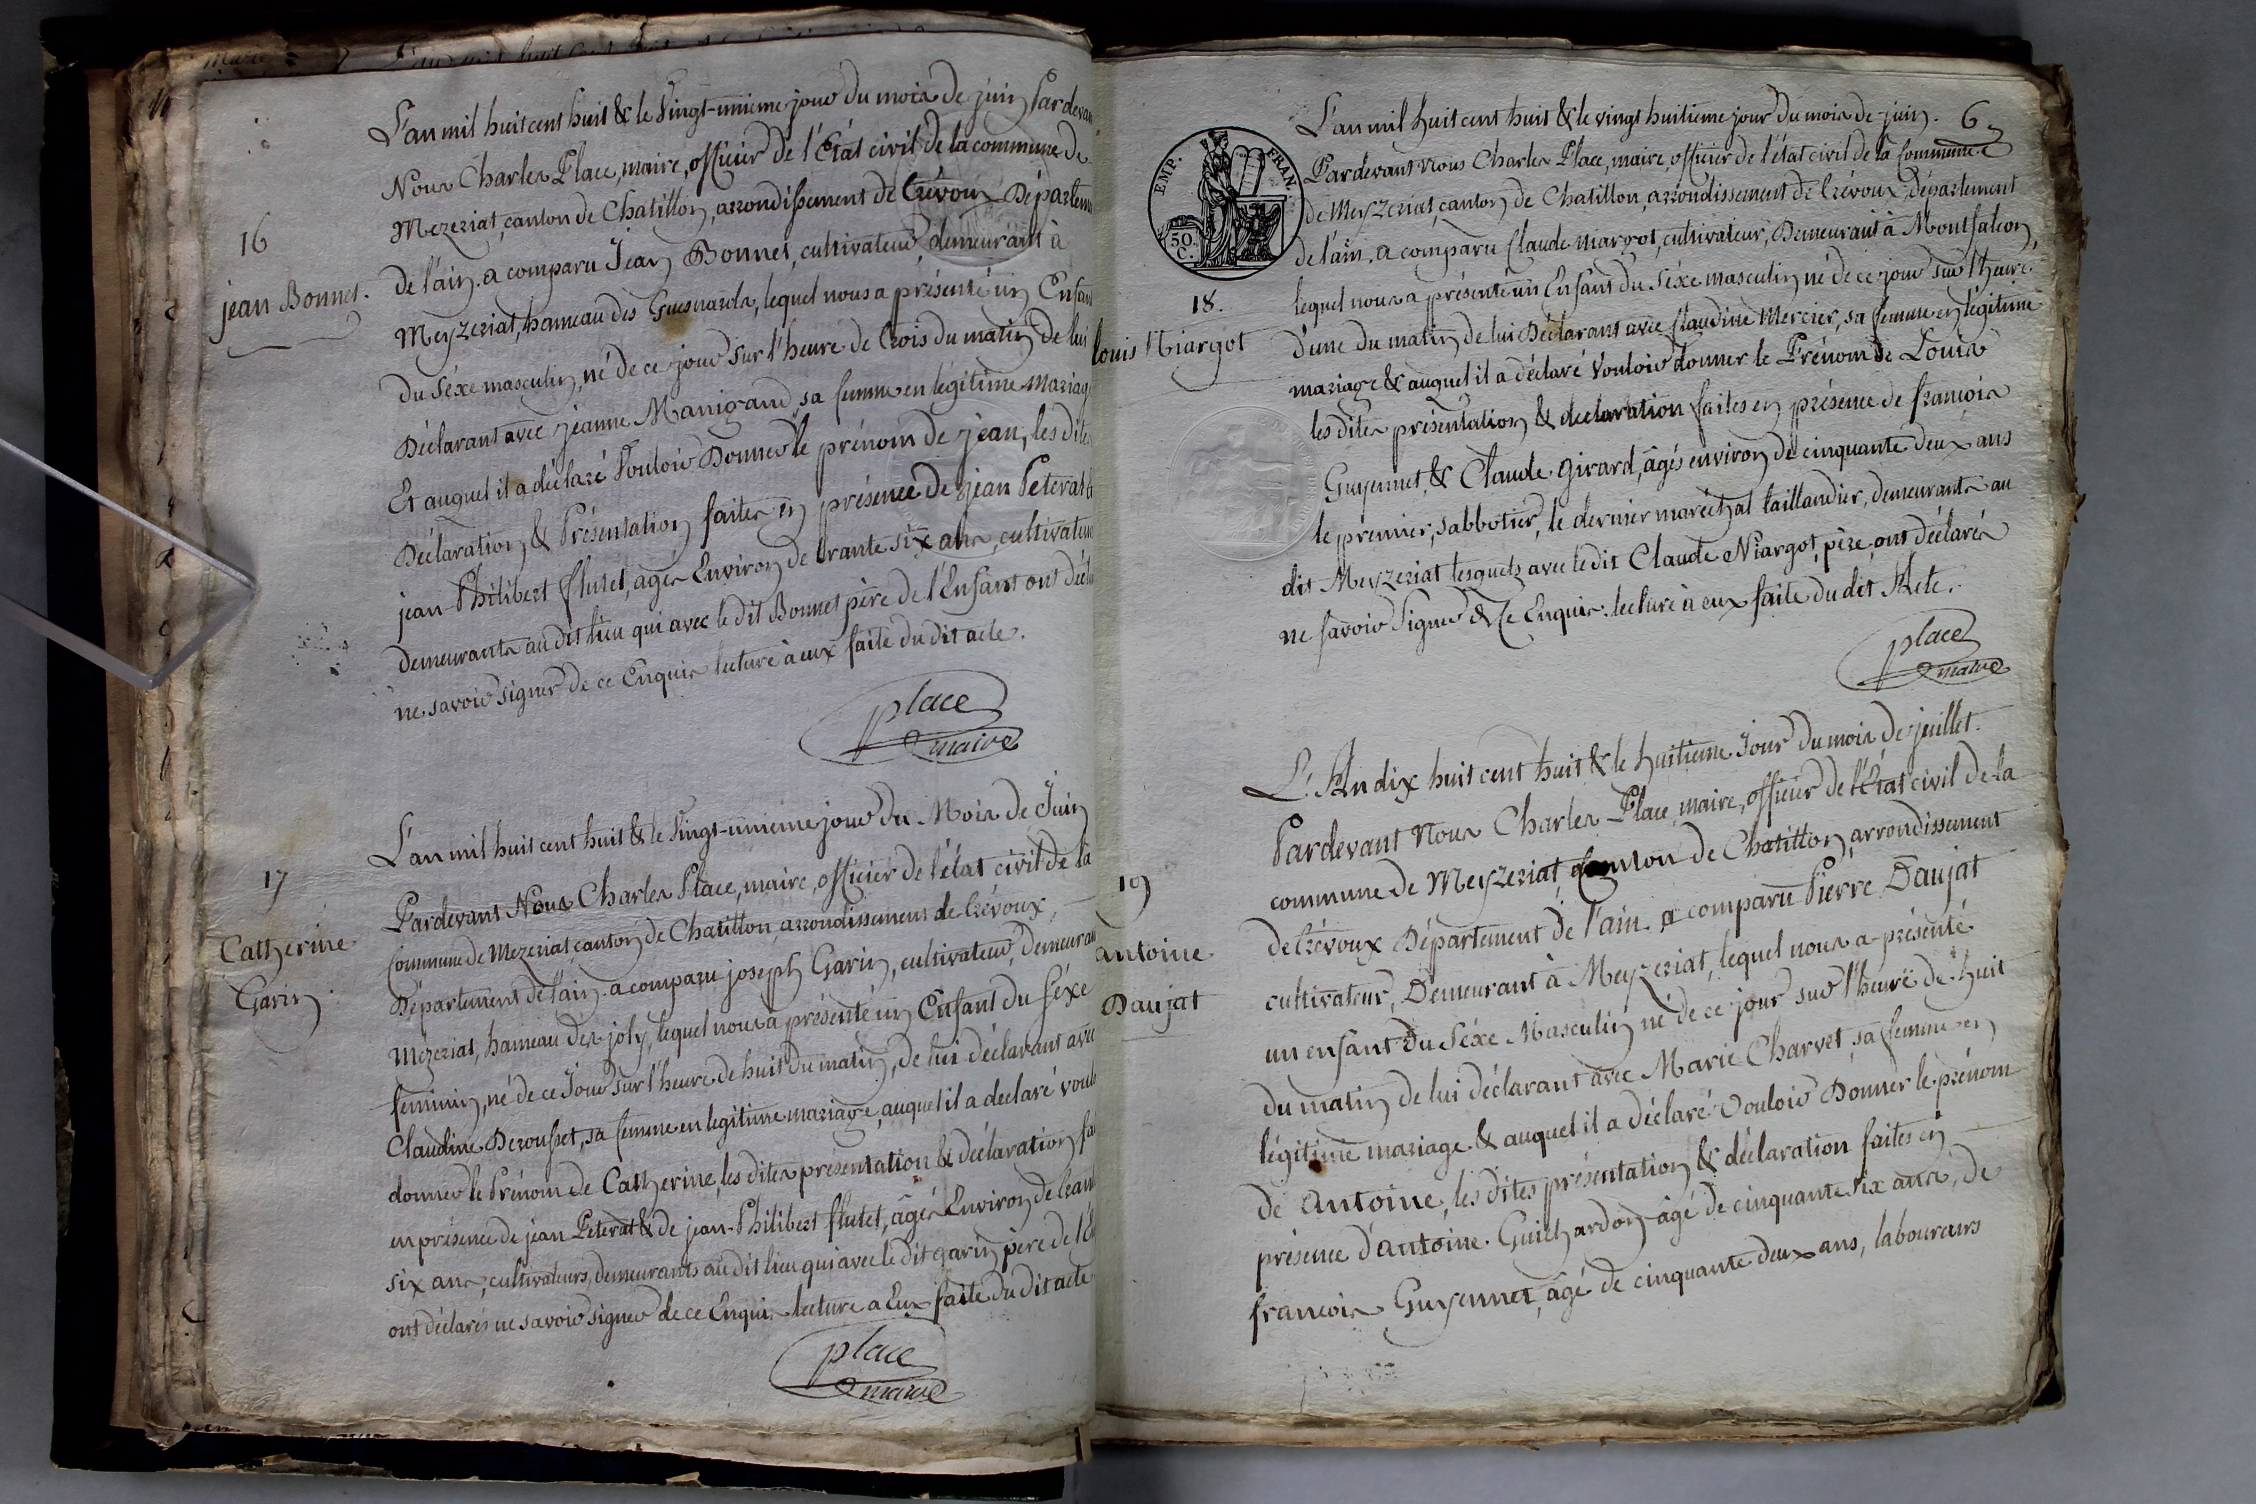 16
jean Bonnet.
L'an mil huit cent huit & le Vingt-unieme jour du mois de juin Pardevan
Nous Charles Place, maire, officier de l'État civil de la commune de
Mezeriat, canton de Chatillon, arrondissement de Trévoux Départem
de l'ain. a comparu Jean Bonnet, cultivateur, demeurant à
Meyzeriat, hameau des Guesnards, lequel nous a présenté un Enfant
du Séxe masculin, né de ce jour sur l'heure de trois du matin de lui
Déclarant avec jeanne Manigand, sa femme en legitime mariag
Et auquel il a déclaré Vouloir Donner le prénom de jean, les dites
Déclaration & Présentation faites en présence de jean Peterat &
jean-Philibert flutet, agés Environ de trante six ans, cultivateurs
demeurants au dit lieu qui avec le dit Bonnet père de l'Enfant ont décla
ne savoir signer de ce Enquis lecture à eux faite du dit acte.
place
maire
17
Catherine
Garin.
L'an mil huit cent huit & le Vingt-unieme jour du Mois de Juin
Pardevant Nous Charles Place, maire, officier de l'état civil de la
commune de Mezeriat, canton de Chatillon, arrondissement de Trévoux,
Département de l'ain. a comparu joseph Garin, cultivateur, demeuran
Mézeriat, hameau des joly, lequel nous a présenté un Enfant du Séxe
feminin, né de ce Jour sur l'heure de huit du matin, de lui déclarant avec
Claudine Derousset, sa femme en legitime mariage, auquel il a declaré voul
donner le Prénom de Catherine, les dites présentation & déclaration fai
en présence de jean Peterat & de jean-Philibert flutet, âgés Environ de trant
six ans, cultivateurs, demeurants au dit lieu qui avec le dit garin père de l'En
ont déclarés ne savoir signer de ce Enquis lecture a Eux faite du dit acte
place
maire
6
EMP. FRAN.
50. C.
18.
Louis Niargot
L'an mil huit cent huit & le vingt huitieme jour du mois de juin.
Pardevant Nous Charles Place, maire, officier de l'état civil de la Commune
de Meyzeriat, canton de Chatillon, arrondissement de Trévoux, département
de l'ain. a comparu Claude Niargot, cultivateur, Demeurant à Montfalcon,
lequel nous a présenté un Enfant du Séxe masculin né de ce jour sur l'heure.
d'une du matin de lui Déclarant avec Claudine Mercier, sa femme en légitime
mariage & auquel il a déclaré Vouloir donner le Prénom de Louis
les dites présentation & declaration faites en présence de francois
Guyennet, & Claude Girard, âgés environ de cinquante deux ans
le premier, sabbotier, le dernier maréchal taillandier, demeurants au
dit Meyzeriat lesquels avec le dit Claude Niargot, père, ont déclarés
ne savoir Signer de ce Enquis: lecture à eux faite du dit Acte.
place
maire
19
Antoine
Daujat
L'An dix huit cent huit & le huitieme Jour du mois de juillet.
Pardevant Nous Charles Place, maire, officier de l'État civil de la
commune de Meyzeriat, canton de Chatillon, arrondissement
de Trévoux Département de l'ain. a comparu Pierre Daujat
cultivateur, Demeurant à Meyzeriat, lequel nous a présenté
un enfant du Séxe Masculin né de ce jour sur l'heure de huit
du matin de lui déclarant avec Marie Charvet, sa femme en
légitime mariage & auquel il a déclaré Vouloir Donner le prénom
de Antoine, les dites présentation & déclaration faites en
présence d'Antoine Guichardon âgé de cinquante six ans, de
francois Guyennet, âgé de cinquante deux ans, laboureurs